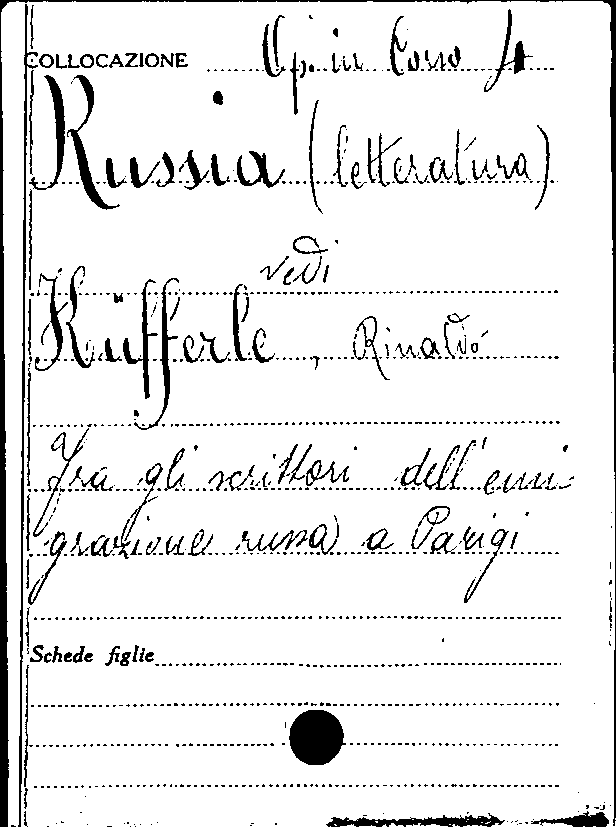 COLLOCAZIONE Op. in Corso 4
Russia (letteratura)
vedi
Küfferle, Rinaldo
Fra gli scrittori dell'emi
grazione russa a Parigi
Schede figlie